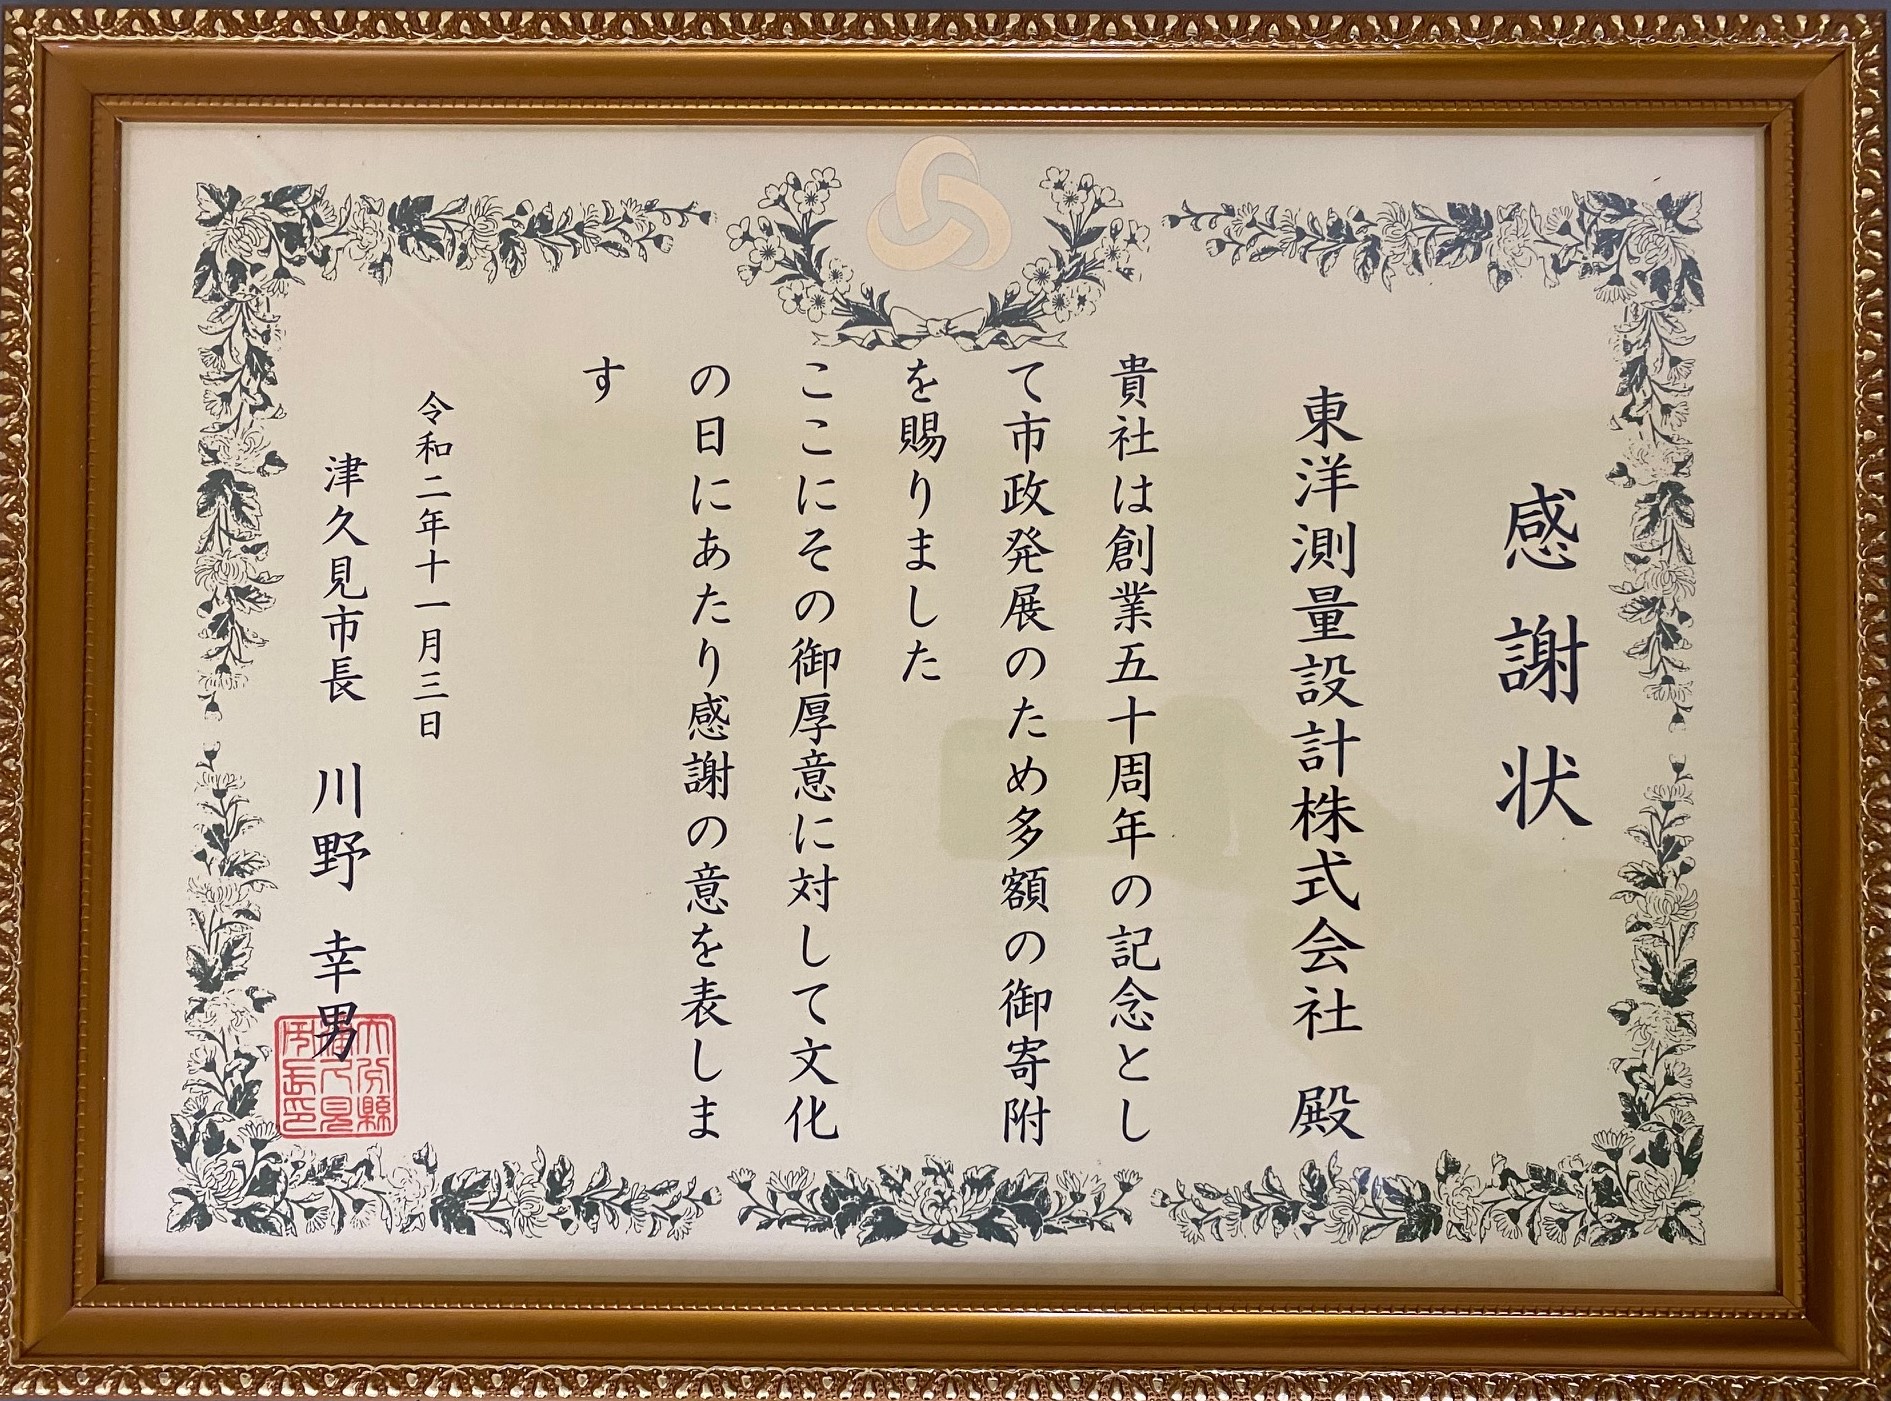 感謝状
東洋測量設計株式会社 殿
貴社は創業五十周年の記念とし
て市政発展のため多額の御寄附
を賜りました
ここにその御厚意に対して文化
の日にあたり感謝の意を表しま
す
令和二年十一月三日
津久見市長 川野 幸男
大分縣
津久見
市長印